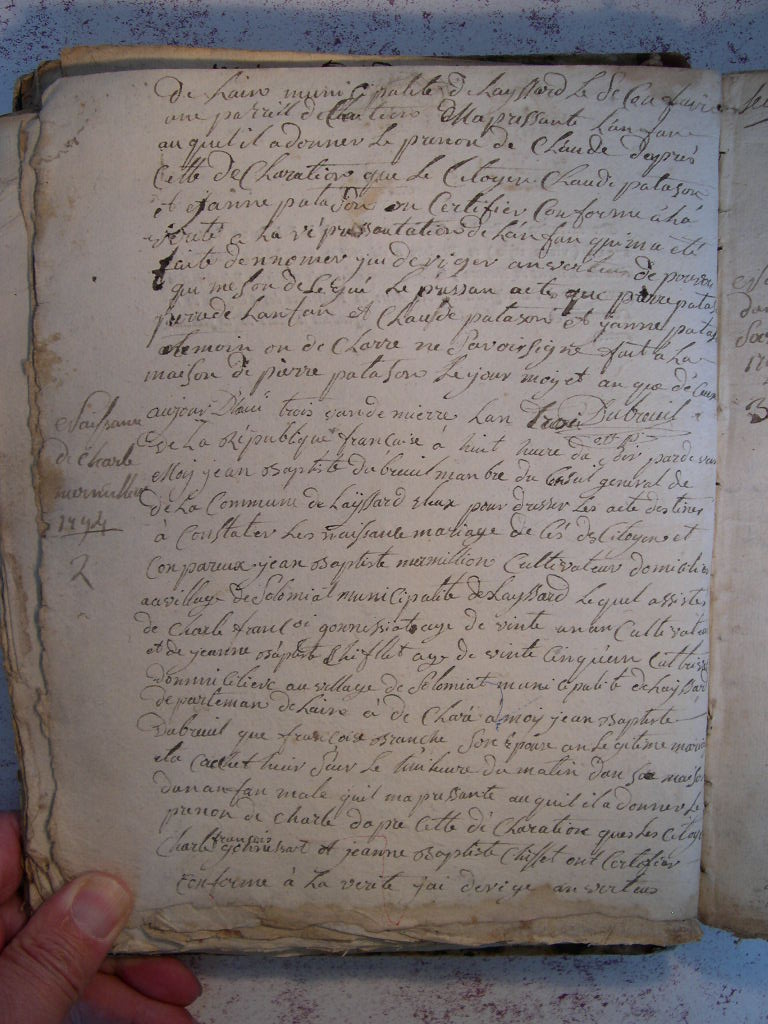 de Lain municipalite de Layssard Le
une pareil de Claration Ma prissante Lan fan
au quil il a donner Le prenon de Claude depres
Cette de Claration que Le Citoyen Claude patason
et janne patason on Certifier Conforme à la
verité a La représsantation de Lanfan qui ma eté
faite de nnomer jai derriger an verteu de pouvoi
qui me son deLegué Le pressan acte que pierre patas
perre de Lanfan et Claude patason et janne patas
temoin on de Clarre ne Savoir signe fait a La
maison de pierre patason Le jour moy et an que deSeux
Dubreuil
off p
aujour Dhui trois vandemierre Lan troi
de La République francaise à huit heure du Soir parde van
Moy jean Baptiste Dubreuil manbre du Consail general de
de La Commune de Layssard Elux pour dresser Les acte destines
à Constater Les naissance mariage de Cés des Citoyen et
Conpareux jean Baptiste mermillion Cultivateur domicilie
au village de Solomiat municipalite de Layssard Lequel assiste
de Charle francoi gonnessiat age de vinte un an Cultivateu
et de jeanne Baptiste Chifflet age de vinte Cinque an Cultri
Donmicilieve au village de Solomiat municipalite de Layssard
de parteman de Lain à de Clara à moy jean Baptiste
Dubreuil que francoise Branche Son Epouse an Legitime maria
eta Couchet hier Sur Le huit heure du matin dan Sa maison
dun anfan male quil ma pressante au quil il a donner Le
prenon de Charle dapre Cette de Claration que Les Citoy
francois
Charle gonnessiat et jeanne Baptiste Chifflet ont Certifier
Conforme à La verite jai derige an verteus
Naissance
de Charle
mermillion
1794
2